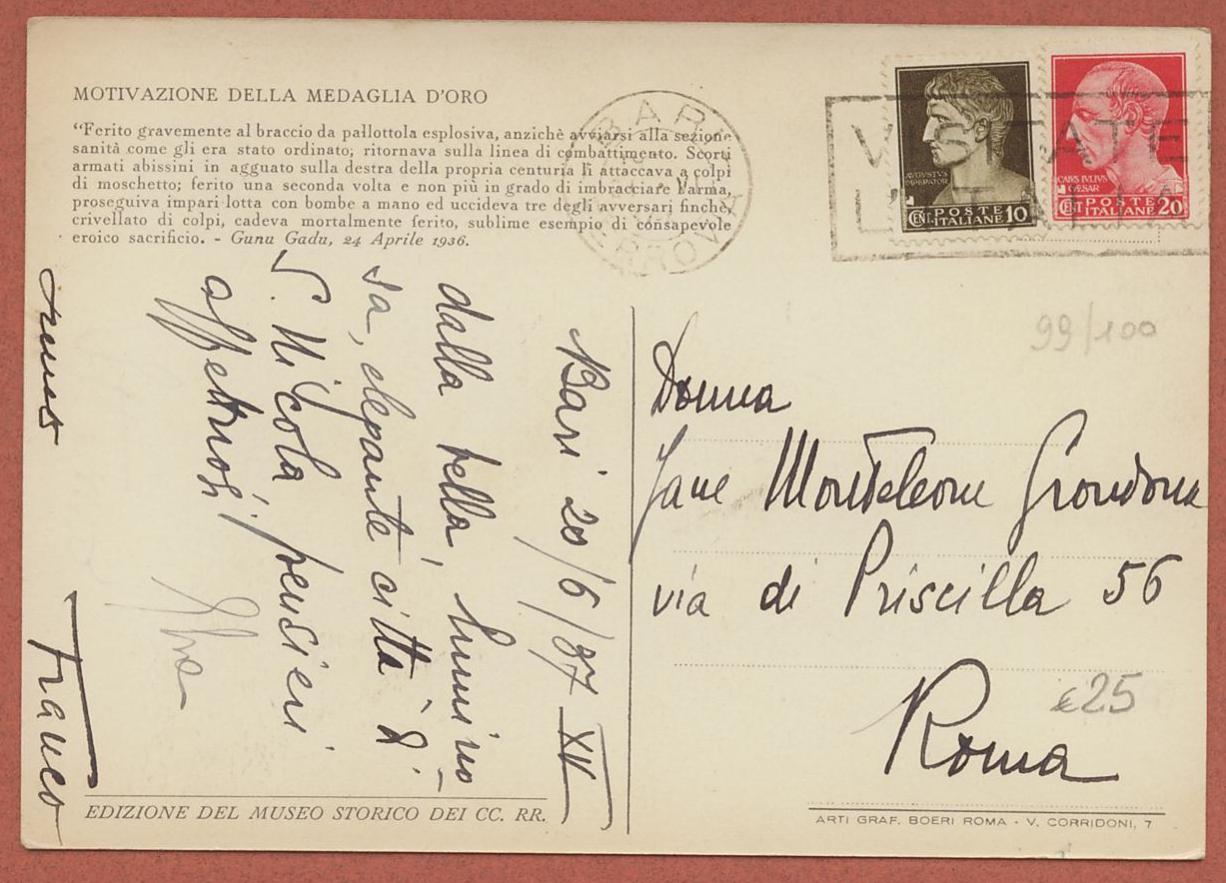 MOTIVAZIONE DELLA MEDAGLIA D'ORO
“Ferito gravemente al braccio da pallottola esplosiva, anzichè avviarsi alla sezione
sanità come gli era stato ordinato; ritornava sulla linea di combattimento. Scorti
armati abissini in agguato sulla destra della propria centuria li attaccava a colpi
di moschetto; ferito una seconda volta e non più in grado di imbracciare l'arma,
proseguiva impari lotta con bombe a mano ed uccideva tre degli avversari finchè,
crivellato di colpi, cadeva mortalmente ferito, sublime esempio di consapevole
eroico sacrificio. - Gunu Gadu, 24 Aprile 1936.
BARI
FERROVIA
VISITATE
L'ITALIA
AVGVSTVS
IMPERATOR
CENT. POSTE
ITALIANE 10
CAIVS IVLIVS
CAESAR
CENT. POSTE
ITALIANE 20
99/100
Bari 20/6/37 XV
dalla bella, lumino-
sa, elegante città di
S. Nicola pensieri
affettuosi
Franco
Donna
Jane Monteleone Grondona
via di Priscilla 56
Roma
€25
EDIZIONE DEL MUSEO STORICO DEI CC. RR.
ARTI GRAF. BOERI ROMA - V. CORRIDONI, 7